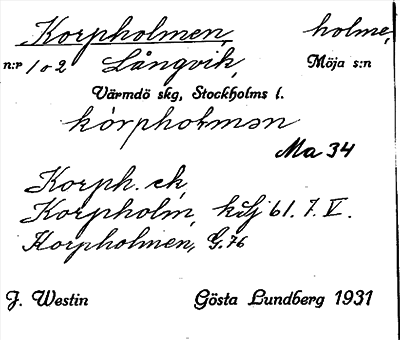 Korpholmen, holme,
n:r 1 o 2 Långvik, Möja s:n
Värmdö skg, Stockholms l.
kòrphołmən
Ma 34
Korph. ek,
Korpholm, kslj 61. 7. V.
Korpholmen, G. 76
J. Westin Gösta Lundberg 1931